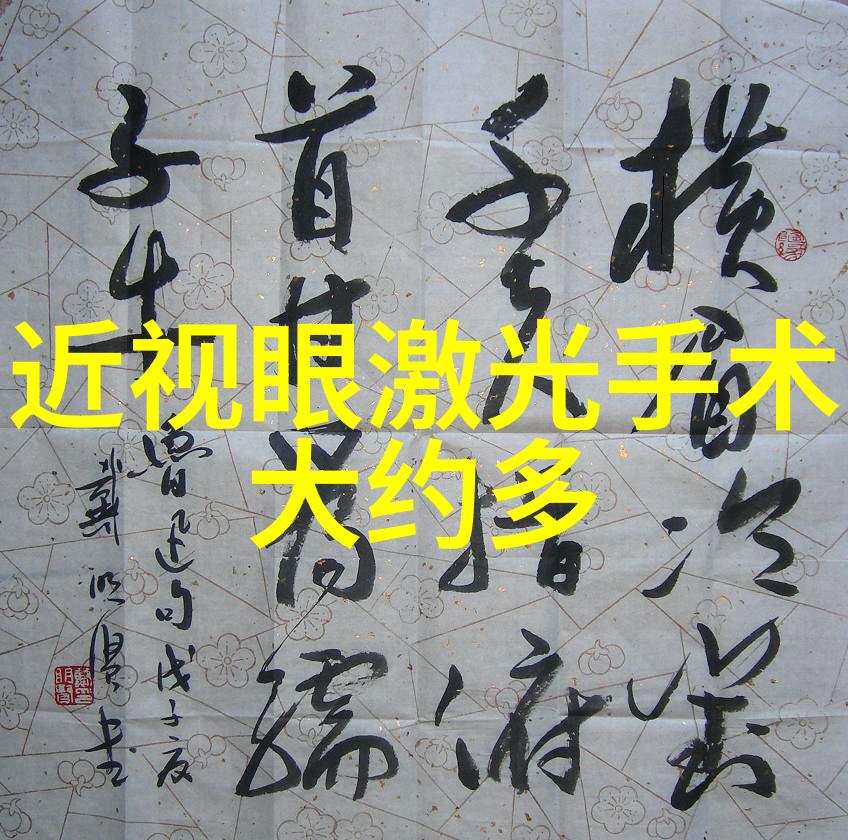 橫眉冷對
千夫指俯
首甘為孺
子牛
魯迅句戊子夏
戴明賢书
近视眼激光手术
大约多